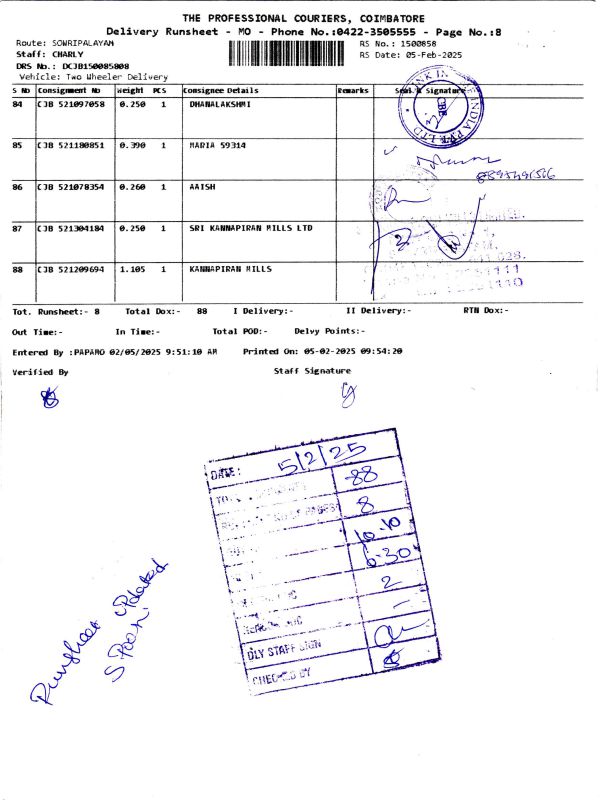 THE PROFESSIONAL COURIERS, COIMBATORE
Delivery Runsheet - MO - Phone No.:0422-3505555 - Page No.:8
Route: SOWRIPALAYAM RS No.: 1500858
Staff: CHARLY RS Date: 05-Feb-2025
DRS No.: DCJB150085808
Vehicle: Two Wheeler Delivery
S No Consignment No Weight PCS Consignee Details Remarks Seal & Signature
84 CJB 521097058 0.250 1 DHANALAKSHMI
85 CJB 521180851 0.390 1 MARIA 59314
86 CJB 521078354 0.260 1 AAISH
87 CJB 521304184 0.250 1 SRI KANNAPIRAN MILLS LTD
88 CJB 521209694 1.105 1 KANNAPIRAN MILLS
Tot. Runsheet:- 8 Total Dox:- 88 I Delivery:- II Delivery:- RTN Dox:-
Out Time:- In Time:- Total POD:- Delvy Points:-
Entered By :PAPAMO 02/05/2025 9:51:10 AM Printed On: 05-02-2025 09:54:20
Verified By Staff Signature
DATE: 5/2/25
88
8
10.10
6.30
2
-
DLY STAFF SIGN
CHECKED BY
Runsheet updated